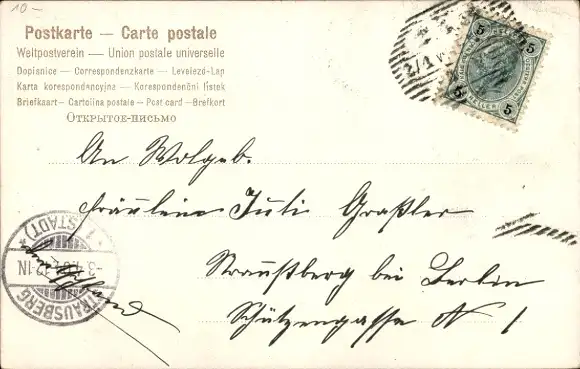 10-
Postkarte — Carte postale
Weltpostverein — Union postale universelle
Dopisnice — Correspondenzkarte — Levelező-Lap
Karta korespondencyjna — Korespondenční lístek
Briefkaart — Cartolina postale — Post card — Brefkort
Открытое-письмо
5 5
5 HELLER 5
An Wolgeb.
Fräulein Juli Graßler
Straußberg bei Berlin
Schützengasse N 1
(STADT)
12-1N
STRAUSBERG